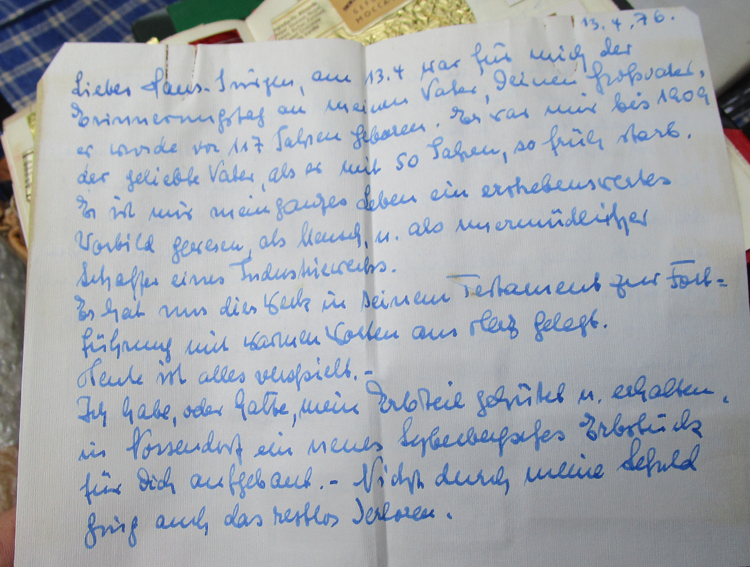 MOCCA
13.4.76.
Lieber Hans-Jürgen, am 13.4 war für mich der
Erinnerungstag an meinen Vater, Deinen Großvater,
er wurde vor 117 Jahren geboren. Er war mir bis 1909
der geliebte Vater, als er mit 50 Jahren, so früh starb.
Er ist mir mein ganzes Leben ein erstrebenswertes
Vorbild gewesen, als Mensch, u. als unermüdlicher
Schaffer eines Industriewerks.
Er hat uns dies Werk in seinem Testament zur Fort=
führung mit warmen Worten ans Herz gelegt.
Heute ist alles verspielt. -
Ich habe, oder hatte, mein Erbteil gehütet u. erhalten,
in Nossendorf ein neues Syberbergsches Erbstück
für Dich aufgebaut. - Nicht durch meine Schuld
ging auch das restlos verloren.